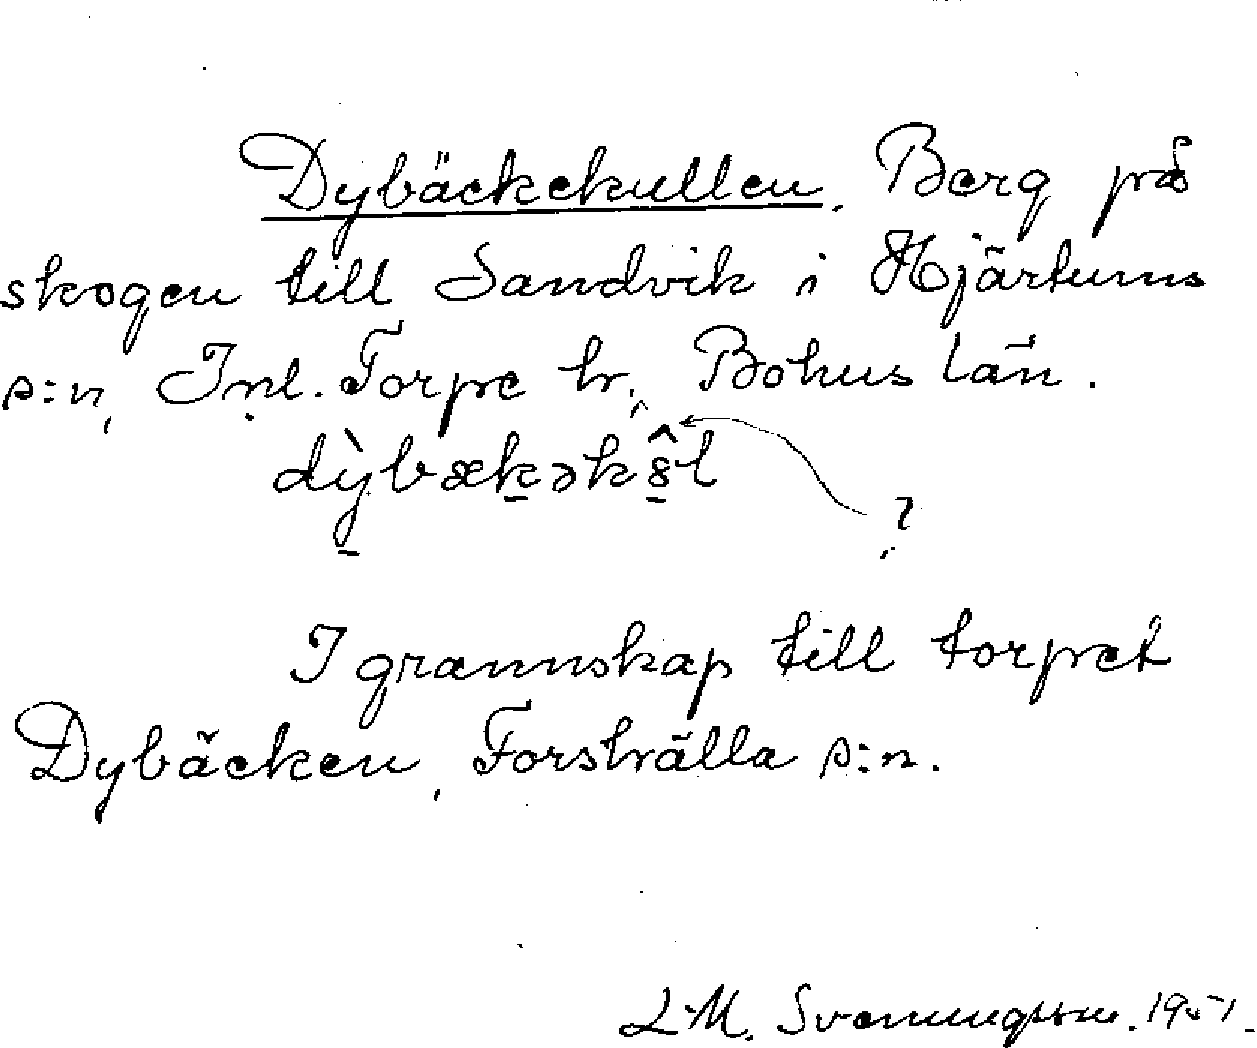 Dybäckekullen. Berg på
skogen till Sandvik i Hjärtums
s:n, Inl. Torpe hr, Bohus län.
dỳbækəkš̂l
?
I grannskap till torpet
Dybäcken, Forshälla s:n.
L.M. Svenungsson. 1951.